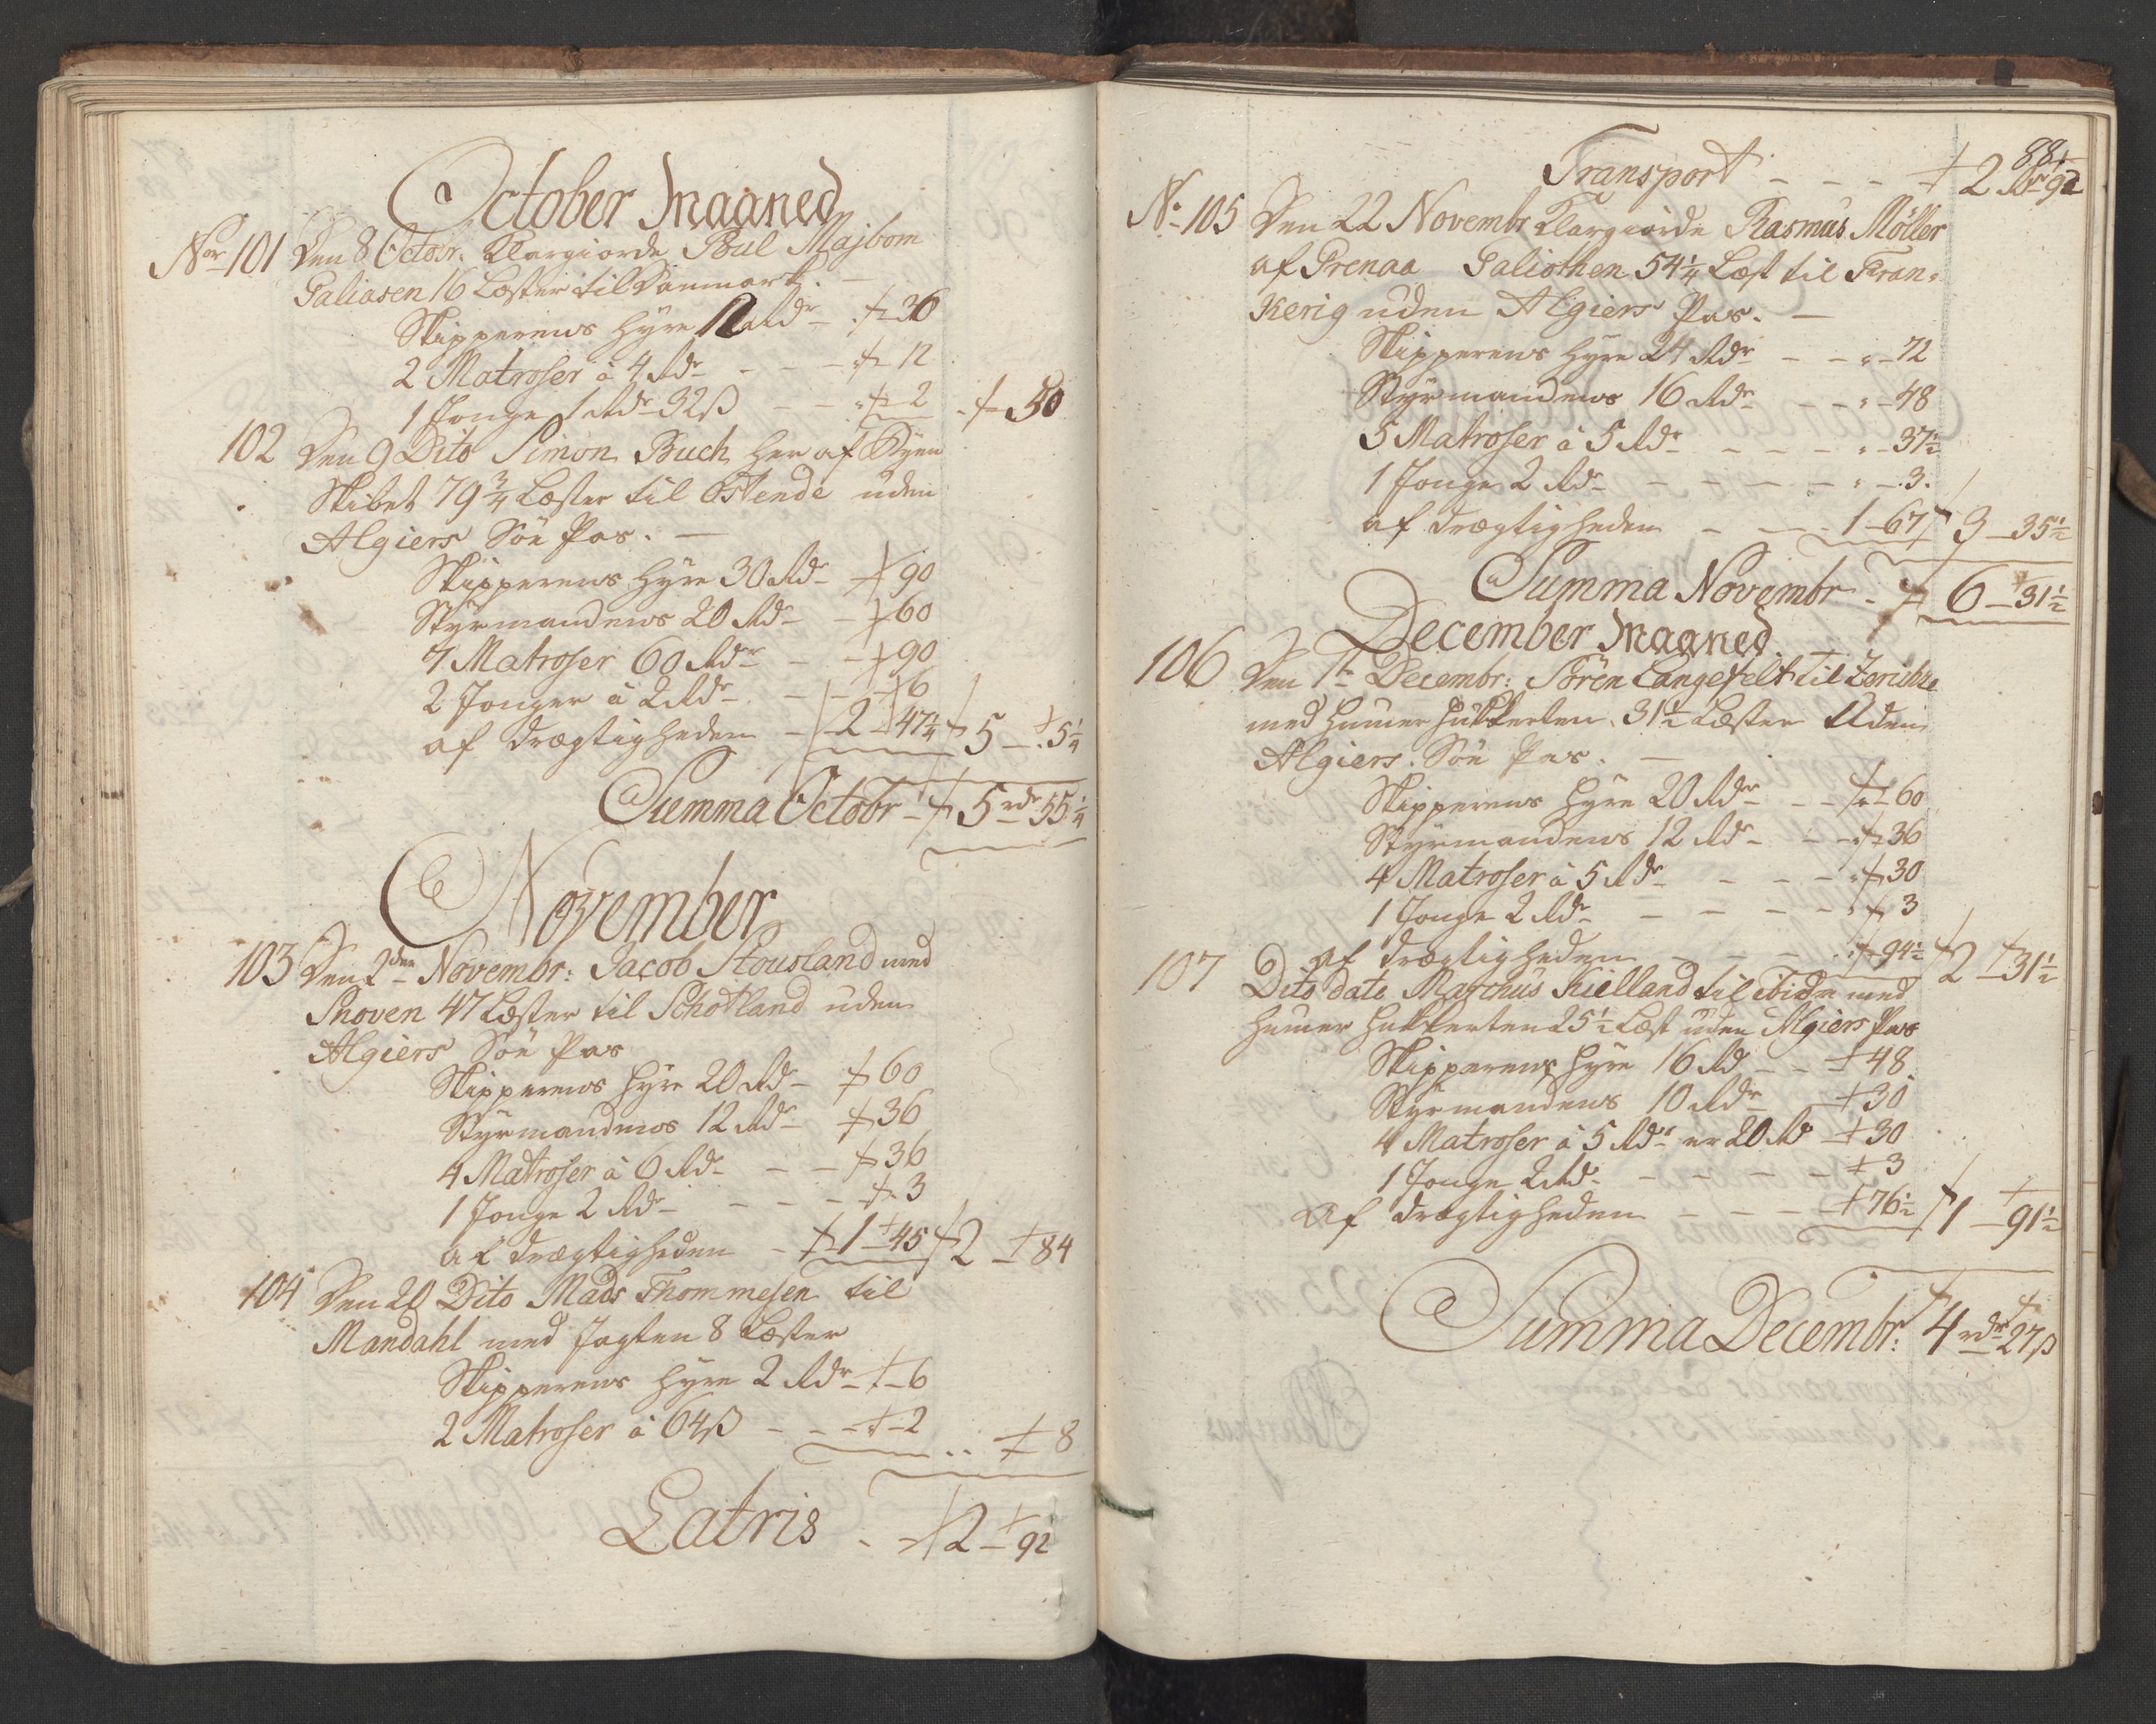 October Maaned
No 101 Den 8 Octobr. Klargiorde Poul Majbom
Galiasen 16 Læster til Danmark. —
Skipperens Hyre 12 Rdr — 36
2 Matroser à 4 Rdr — — — 12
1 Jonge 1 Rdr 32 ß — — 2 — 50
102 Den 9 Dito Simon Buch her af Byen
Skibet 79 3/4 Læster til Ostende uden
Algiers Söe Pas. —
Skipperens Hyre 30 Rdr — 90
Styrmandens 20 Rdr — 60
7 Matroser 60 Rdr — — 90
2 Jonger à 2 Rdr — — 6
af drægtigheden — 2 — 47 1/4 5 — 5 1/4
Summa Octobr — 5 rdr 55 1/4
November
103 Den 2den Novembr: Jacob Stousland med
Snoven 47 Læster til Schotland uden
Algiers Söe Pas
Skipperens Hyre 20 Rdr — 60
Styrmandens 12 Rdr — 36
4 Matroser à 6 Rdr — — 36
1 Jonge 2 Rdr — — — 3
af drægtigheden — 1 — 45 2 — 84
104 Den 20 Dito Mads Thommesen til
Mandahl med Jagten 8 Læster
Skipperens Hyre 2 Rdr — 6
2 Matroser à 64 ß — — — 2 . . 8
Latris . — 2 — 92
Transport — — — 2 88 92
No 105 Den 22 Novembr Klargiorde Rasmus Möller
af Grenaa Galiothen 54 1/4 Læst til Fran-
kerig uden Algiers Pas. —
Skipperens Hyre 24 Rdr — — 72
Styrmandens 16 Rdr — — 48
5 Matroser à 5 Rdr — — — 37 1/2
1 Jonge 2 Rdr — — — — 3.
af drægtigheden — — — 1 — 67 3 — 35 1/2
Summa Novembr — 6 — 31 1/2
December Maaned
106 Den 1te Decembr: Sören Langefelt til Zerickze
med Humer Hukkerten 31 1/2 Læster Uden
Algiers Söe Pas. —
Skipperens Hyre 20 Rdr — — 60
Styrmandens 12 Rdr — — 36
4 Matroser à 5 Rdr — — — 30
1 Jonge 2 Rdr — — — — 3
af drægtigheden — — — 94 1/2 2 — 31 1/2
107 Dito dato Marchus Kielland til Dito med
Humer Hukkerten 25 1/2 Læst uden Algiers Pas
Skipperens Hyre 16 Rd — — 48
Styrmandens 10 Rdr — 30
4 Matroser à 5 Rdr er 20 Rd — 30
1 Jonge 2 Rd — — — — 3
Af drægtigheden — — — 76 1/2 1 — 91 1/2
Summa Decembr: 4 rdr 27 ß